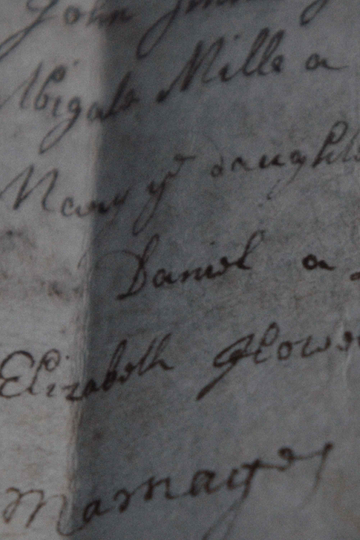 John
Abigale Mills a
Mary yᵉ daught
Daniel a
Elizabeth Glove
Mariages